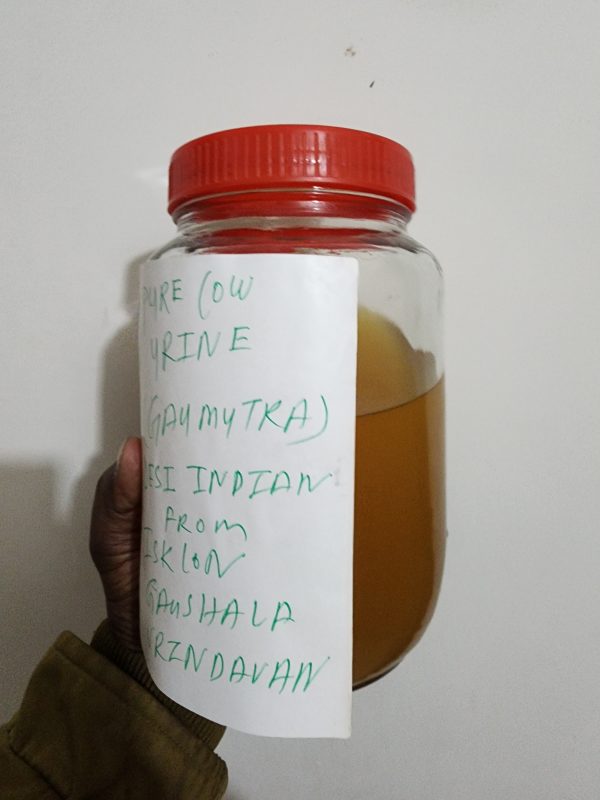 PURE COW
URINE
(GAUMUTRA)
DESI INDIAN
FROM
ISKCON
GAUSHALA
VRINDAVAN